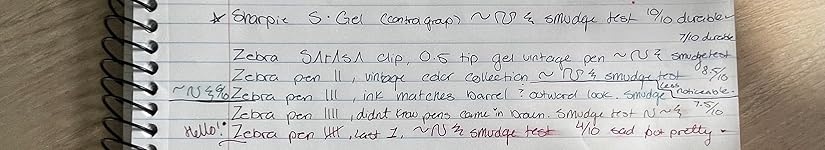 ☆ Sharpie S·Gel (contra grap) ~ smudge test 10/10 durable
7/10 durable
Zebra SARASA clip, 0.5 tip gel vintage pen ~ smudge test
Zebra pen II, vintage color collection ~ smudge test 8.5/10
Zebra pen III, ink matches barrel ? outward look. smudge less noticeable.
Zebra pen IIII, didnt know pens came in brown. smudge test 7.5/10
Hello! Zebra pen IIII, last 1, ~ smudge test 4/10 sad but pretty.